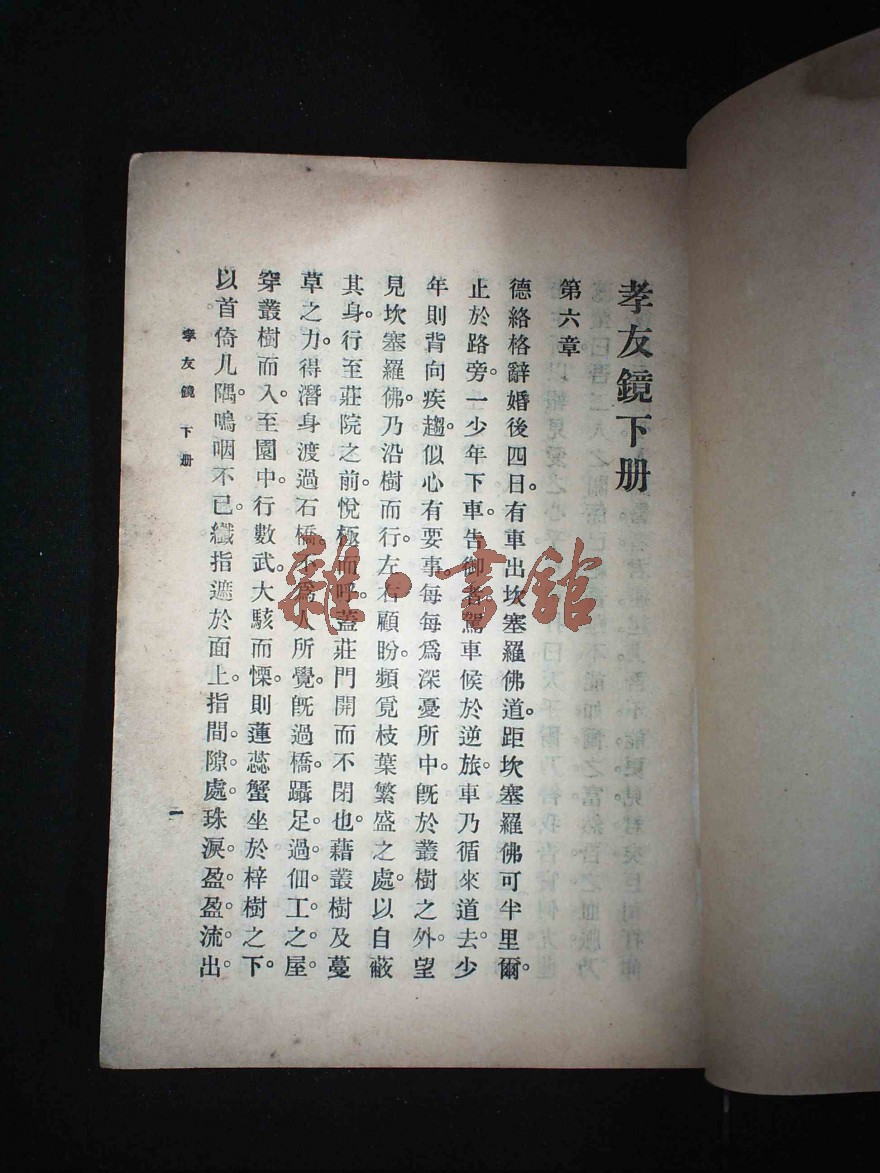 孝友鏡下册
第六章
德絡格辭婚後四日。有車出坎塞羅佛道。距坎塞羅佛可半里爾。
止於路旁。一少年下車。告御者駕車候於逆旅。車乃循來道去。少
年則背向疾趨。似心有要事。每每爲深憂所中。旣於叢樹之外。望
見坎塞羅佛。乃沿樹而行。左右顧盼。頻覓枝葉繁盛之處。以自蔽
其身。行至莊院之前。悅極而呼。蓋莊門開而不閉也。藉叢樹及蔓
草之力。得潛身渡過石橋。不爲人所覺。旣過橋。躡足。過佃工之屋。
穿叢樹而入。至園中。行數武。大駭而慄。則蓮蕊蟹坐於梓樹之下。
以首倚几隅。嗚咽不已。纖指遮於面上。指間隙處。珠淚盈盈流出。
孝友鏡 下册
一
雜·書館